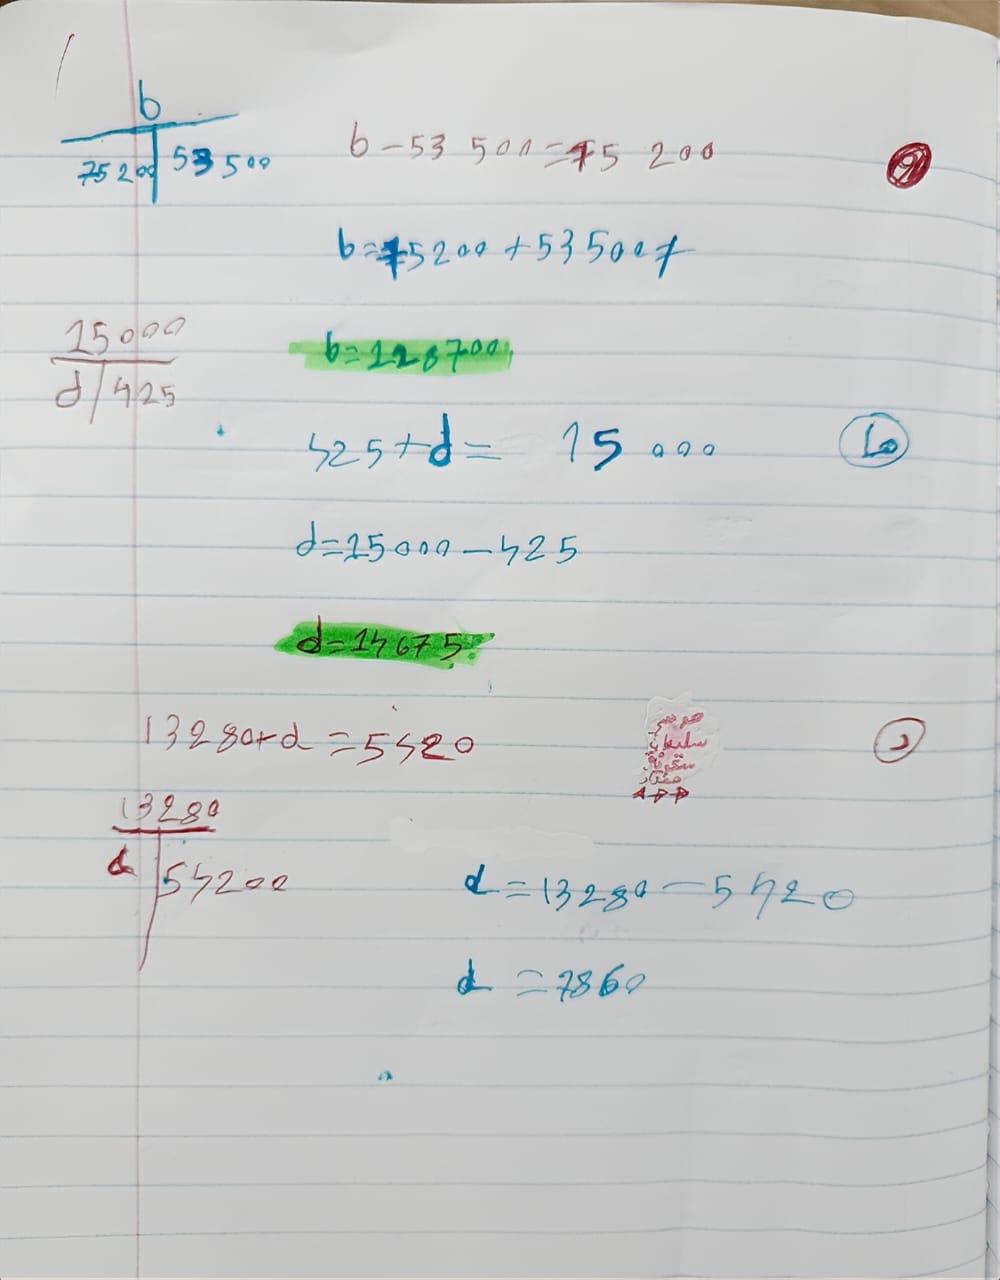 b
75200 53500
b-53 500=75 200
b=75200+53500
b=128700
15000
d 425
425+d= 15000
d=15000-425
d=14675
13280+d=5420
13280
d 54200
d=13280-5420
d=7860